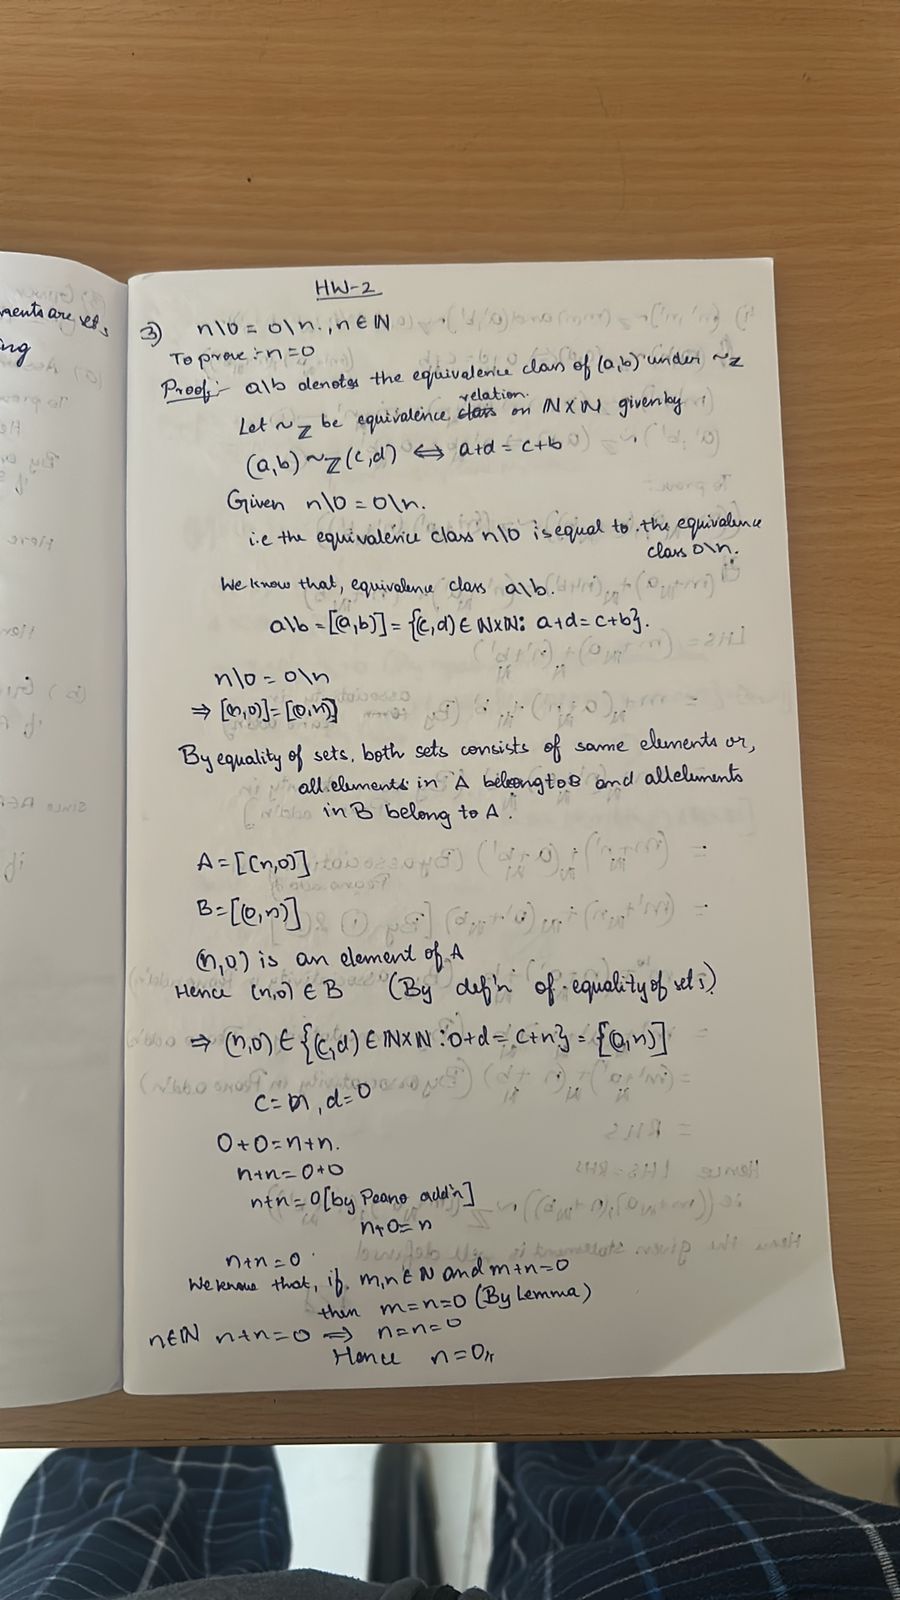 ments are sets
ing
HW-2
3) n\0 = 0\n., n∈ℕ
To prove :- n=0
Proof:- a\b denotes the equivalence class of (a,b) under ~ℤ
Let ~ℤ be equivalence relation on ℕ×ℕ given by
(a,b) ~ℤ (c,d) ⇔ a+d = c+b
Given n\0 = 0\n.
i.e the equivalence class n\0 is equal to the equivalence
class 0\n.
We know that, equivalence class a\b.
a\b = [(a,b)] = {(c,d) ∈ ℕ×ℕ: a+d = c+b}.
n\0 = 0\n
⇒ [(n,0)] = [(0,n)]
By equality of sets, both sets consists of same elements or,
all elements in A belong to B and all elements
in B belong to A.
A = [(n,0)]
B = [(0,n)]
(n,0) is an element of A
Hence (n,0) ∈ B (By def'n of equality of sets)
⇒ (n,0) ∈ {(c,d) ∈ ℕ×ℕ : 0+d = c+n} = [(0,n)]
c = n, d=0
0+0 = n+n.
n+n = 0+0
n+n = 0 [by Peano add'n]
n+0 = n
n+n = 0
We know that, if m,n ∈ ℕ and m+n=0
then m=n=0 (By Lemma)
n∈ℕ n+n = 0 ⇒ n=n=0
Hence n=0//